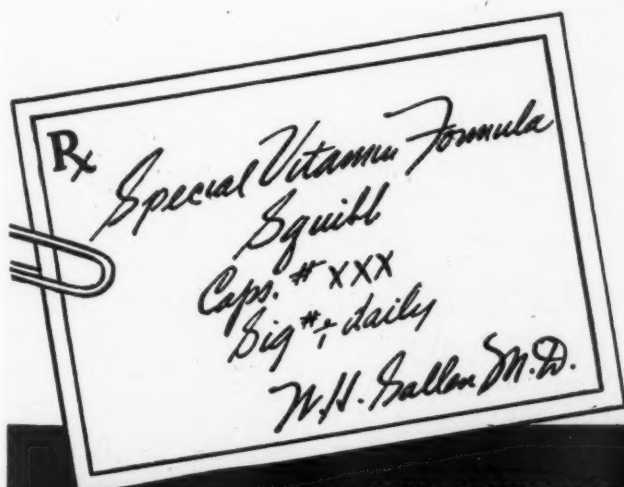 Rx
Special Vitamin Formula
Squibb
Caps. # XXX
Sig #÷ daily
W.H. M.D.